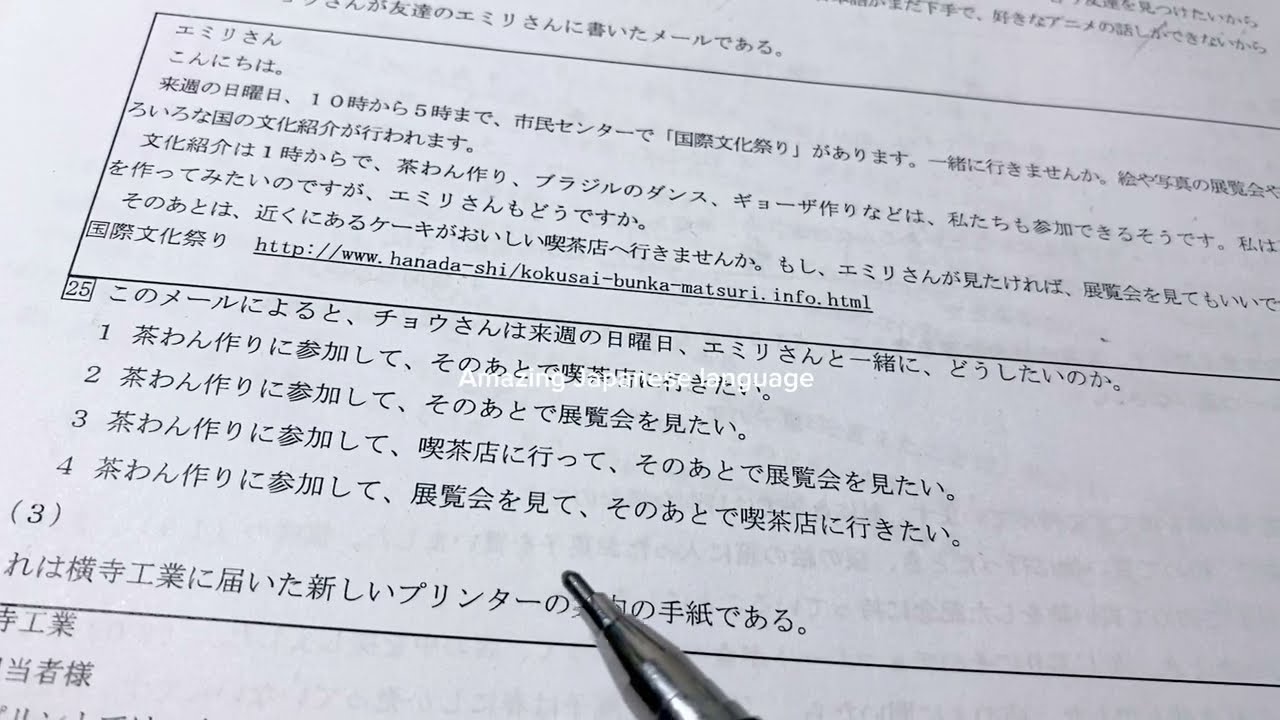 友達を見つけたいから
がまだ下手で、好きなアニメの話しができないから
ョウさんが友達のエミリさんに書いたメールである。
エミリさん
こんにちは。
来週の日曜日、１０時から５時まで、市民センターで「国際文化祭り」があります。一緒に行きませんか。絵や写真の展覧会や
ろいろな国の文化紹介が行われます。
文化紹介は１時からで、茶わん作り、ブラジルのダンス、ギョーザ作りなどは、私たちも参加できるそうです。私は
を作ってみたいのですが、エミリさんもどうですか。
そのあとは、近くにあるケーキがおいしい喫茶店へ行きませんか。もし、エミリさんが見たければ、展覧会を見てもいいで
国際文化祭り http://www.hanada-shi/kokusai-bunka-matsuri.info.html
25 このメールによると、チョウさんは来週の日曜日、エミリさんと一緒に、どうしたいのか。
1 茶わん作りに参加して、そのあとで喫茶店に行きたい。
Amazing Japanese language
2 茶わん作りに参加して、そのあとで展覧会を見たい。
3 茶わん作りに参加して、喫茶店に行って、そのあとで展覧会を見たい。
4 茶わん作りに参加して、展覧会を見て、そのあとで喫茶店に行きたい。
(3)
れは横寺工業に届いた新しいプリンターの の手紙である。
寺工業
当者様